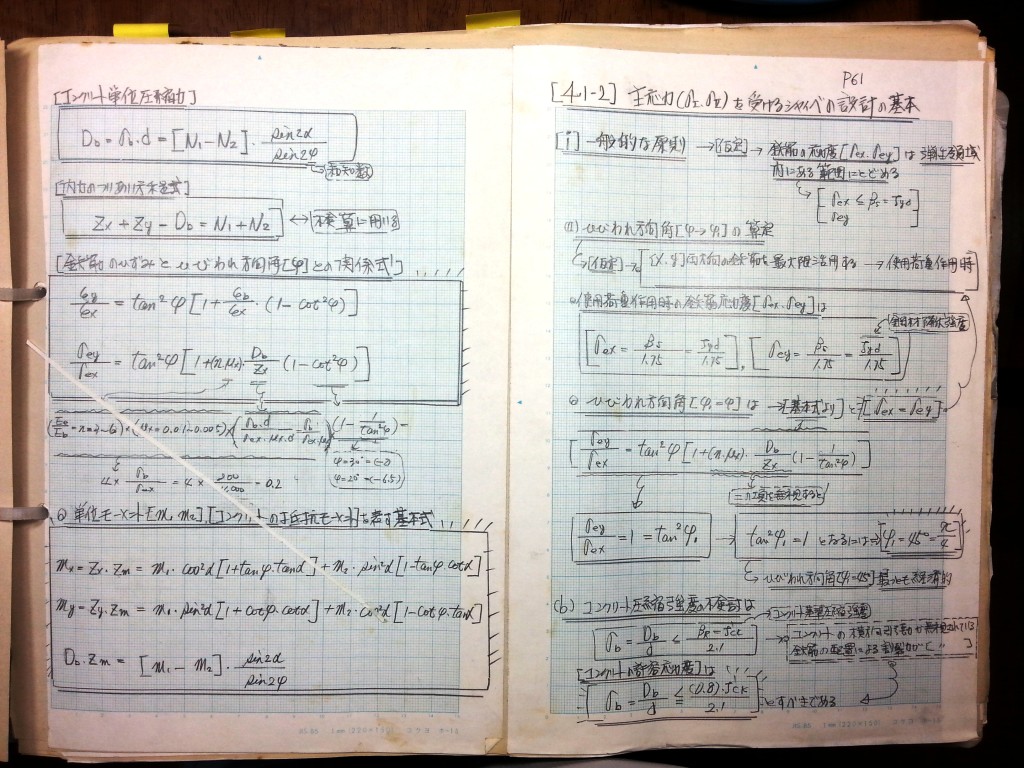 [コンクリート単位圧縮力]
D_b = σ_b・d = [N₁-N₂]・sin2α/sin2φ
未知数
[内力のつりあい方程式]
Z_x + Z_y - D_b = N₁ + N₂ ↔ 検算に用いる
[鉄筋のひずみとひびわれ方向角[φ]との関係式]
ε_y/ε_x = tan²φ[1 + ε_b/ε_x・(1-cot²φ)]
σ_ey/σ_ex = tan²φ[1+(n・μ_x)・D_b/Z_x (1-cot²φ)]
(1-1/tan²φ)
φ=30°=(-2)
4 × σ_b/σ_ex = 4 × 200/ = 0.2
◎ 単位モーメント[m₁ m₂],[コンクリートの抵抗モーメント]を表す基本式
m_x = Z_x・Z_m = m₁・cos²α[1+tanφ・tanα] + m₂・sin²α[1-tanφ・cotα]
m_y = Z_y・Z_m = m₁・sin²α[1+cotφ・cotα] + m₂・cos²α[1-cotφ・tanα]
D_b・Z_m = [m₁-m₂]・sin2α/sin2φ
P61
[4.1-2] 主応力(σ_I,σ_II)を受けるシャイベの設計の基本
[i] 一般的な原則 → [仮定] → 鉄筋の応力度[σ_ex・σ_ey]は弾性領域
内にある範囲にとどめる
[σ_ex ≤ β_s = f_yd
σ_ey
(a) ひびわれ方向角[φ→φ₁]の算定
[仮定] → [(x,y)両方向の鉄筋を最大限に活用する → 使用荷重作用時]
◎ 使用荷重作用時の鉄筋応力度[σ_ex・σ_ey]は
[σ_ex = β_s/1.75 = f_yd/1.75], [σ_ey = β_s/1.75 = f_yd/1.75]
◎ ひびわれ方向角[φ₁=φ]は 基本式より [σ_ex = σ_ey]
[σ_ey/σ_ex = tan²φ[1+(n・μ_x)・D_b/Z_x (1-1/tan²φ)]
二項を無視すると
σ_ey/σ_ex = 1 = tan²φ₁ → tan²φ₁ = 1 となるには ⇒ [φ₁=45°=π/4]
ひびわれ方向角[φ₁=45°]最も経済的
(b) コンクリート圧縮強度の検討は
コンクリート基準圧縮強度
σ_b = D_b/d ≤ β_R = f_ck/2.1
[コンクリート許容応力度]は
σ_b = D_b/d ≤ (0.8)・f_ck/2.1 とすべきである